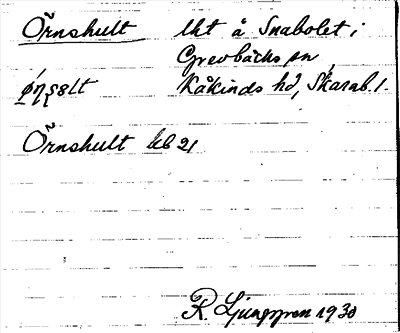 Örnshult lht å Snabolet i
Grevbäcks sn
Kåkinds hd, Skarab. l.
Örnshult kb 21
R. Ljunggren 1930